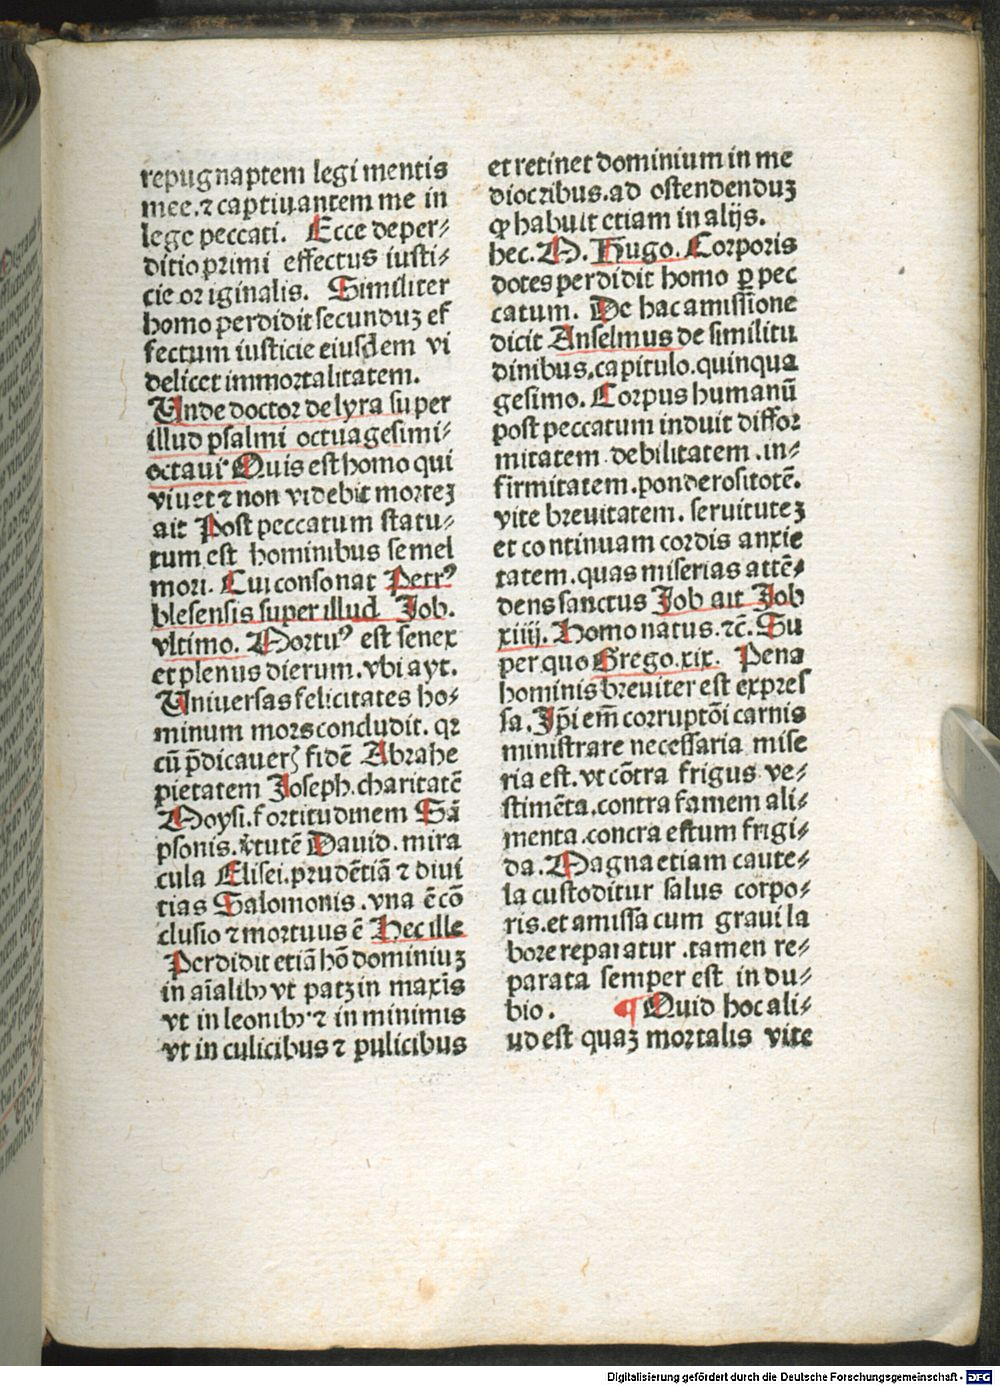 repugnaptem legi mentis
mee.⁊ captiuantem me in
lege peccati. Ecce deper⸗
ditio primi effectus iusti⸗
cie or iginalis. Similiter
homo perdidit secunduꝫ ef
fectum iusticie eiusdem vi
delicet immortalitatem.
Unde doctor de lyra super
illud psalmi octuagesimi⸗
octaui Quis est homo qui
viuet ⁊ non videbit morteꝫ
ait Post peccatum statu⸗
tum est hominibus semel
mori. Cui consonat Petrꝰ
blesensis super illud Job.
vltimo. Mortuꝰ est senex
et plenus dierum. vbi ayt.
Uniuersas felicitates ho⸗
minum mors concludit. qr
cū p̄dicauerꝭ fidē Abrahe
pietatem Joseph. charitatē
Moysi. fortitudinem Sā
psonis. v̄tutē Dauid. mira
cula Elisei. prudētiā ⁊ diui
tias Salomonis. vna ē cō
clusio ⁊ mortuus ē Hec ille
Perdidit etiā hō dominiuꝫ
in aīalibꝰ vt patꝫ in maxīs
vt in leonibꝰ ⁊ in minimis
vt in culicibus ⁊ pulicibus
et retinet dominium in me
diocribus. ad ostendenduꝫ
ꝙ habuit etiam in alijs.
hec. M. Hugo. Corporis
dotes perdidit homo ꝑ pec
catum. De hac amissione
dicit Anselmus de similitu
dinibus. capitulo. quinqua
gesimo. Corpus humanū
post peccatum induit diffor
mitatem. debilitatem. in⸗
firmitatem. ponderositotē.
vite breuitatem. seruituteꝫ
et continuam cordis anxie
tatem. quas miserias attē⸗
dens sanctus Job ait Job
xiiij. Homo natus. ⁊c̄. Su
per quo Grego. xix. Pena
hominis breuiter est expres
sa. Ip̄i em̄ corruptōi carnis
ministrare necessaria mise
ria est. vt cōtra frigus ve⸗
stimēta. contra famem ali⸗
menta. concra estum frigi⸗
da. Magna etiam caute⸗
la custoditur salus corpo⸗
ris. et amissa cum graui la
bore reparatur. tamen re⸗
parata semper est in du⸗
bio. ¶ Quid hoc ali⸗
ud est quaꝫ mortalis vite
Digitalisierung gefördert durch die Deutsche Forschungsgemeinschaft - DFG